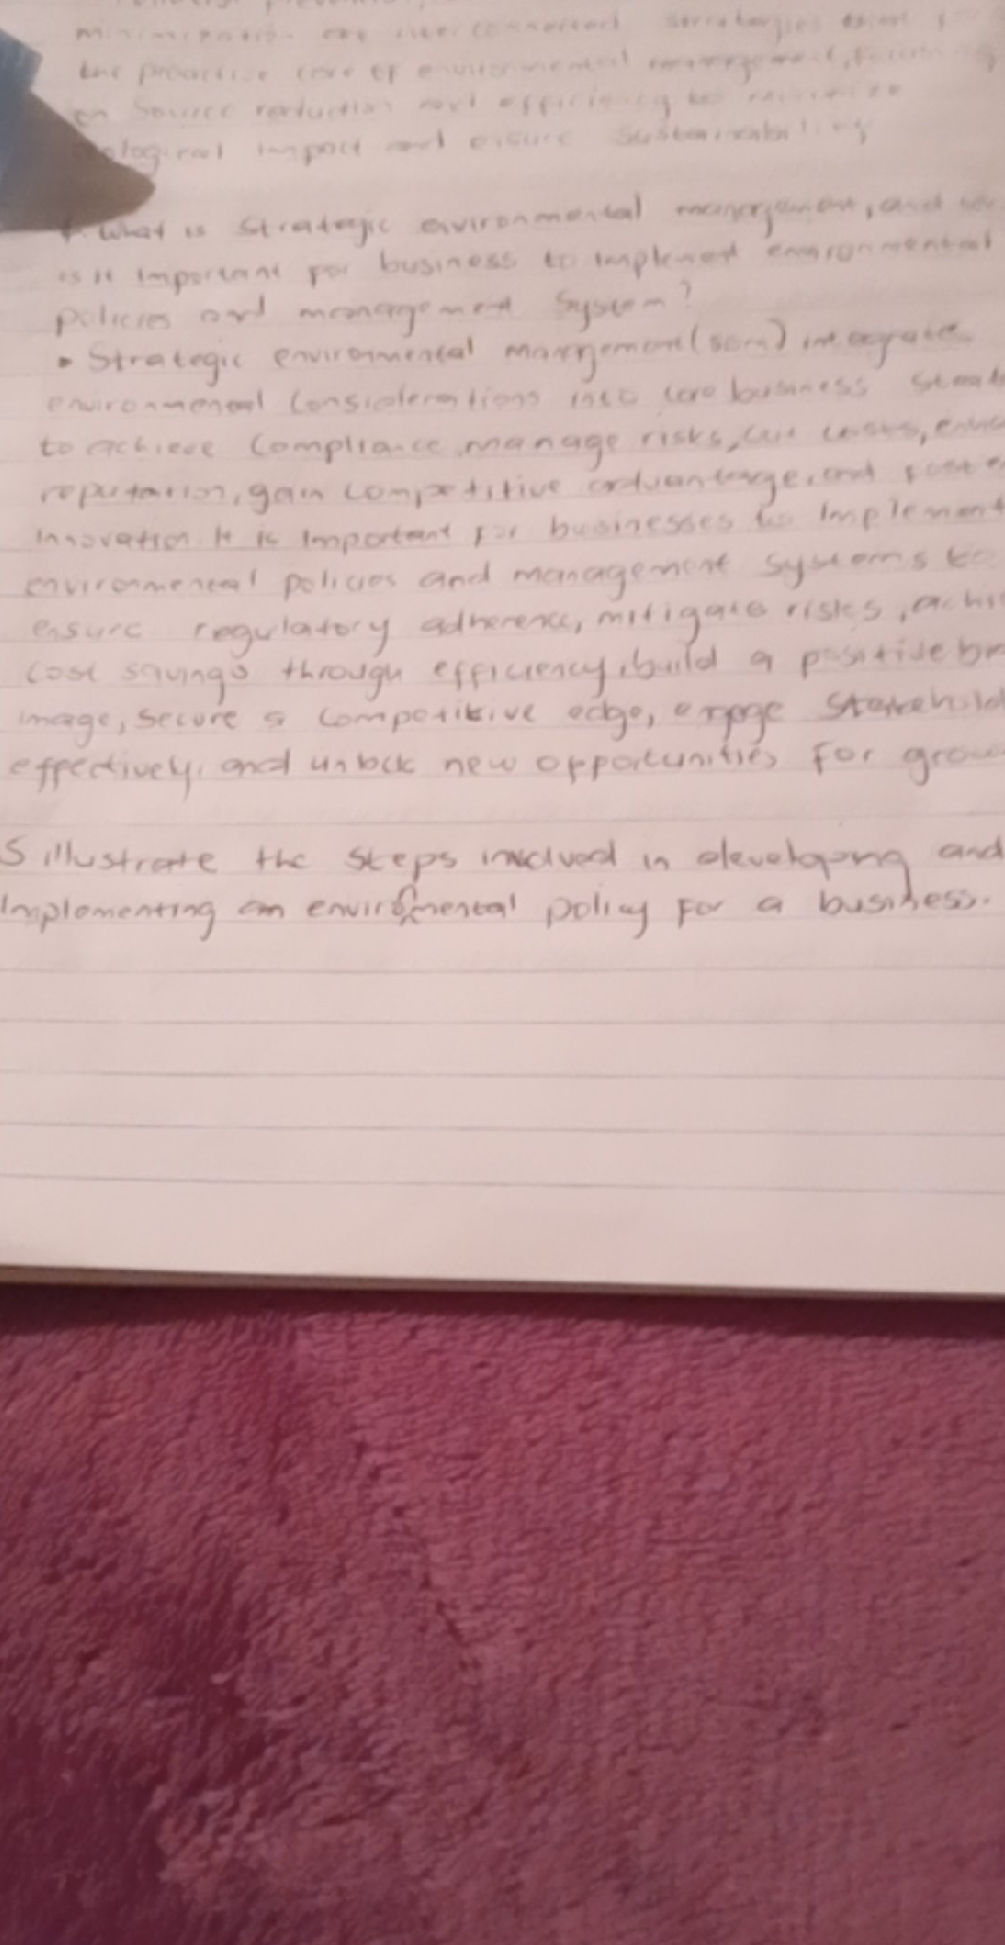 minimization are interconnected strategies
the proactive core of environmental management,
on source reduction and efficiency to
impact and ensure sustainability
What is Strategic environmental management, and
is it important for business to implement environmental
policies and management system?
• Strategic environmental management (sem) integrates
environmental considerations into core business
to achieve compliance, manage risks, cut costs,
reputation, gain competitive advantage, and
innovation. It is important for businesses to implement
environmental policies and management systems to
ensure regulatory adherence, mitigate risks, achi
cost savings through efficiency, build a positive br
image, secure a competitive edge, engage stakehold
effectively, and unlock new opportunities for grow
5 illustrate the steps involved in developing and
implementing an environmental policy for a business.